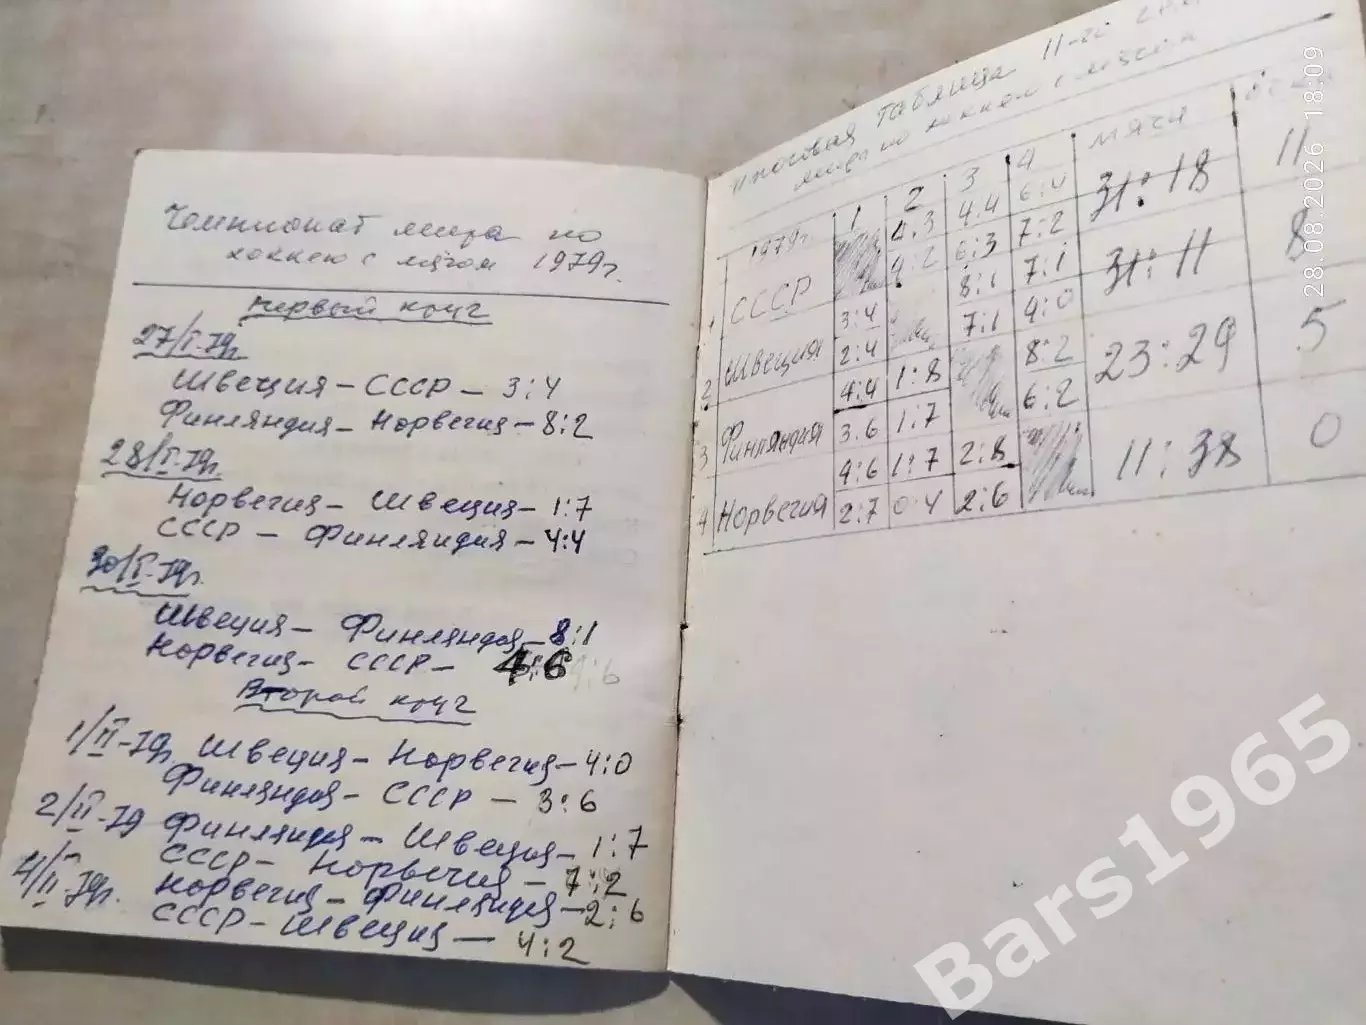 Чемпионат мира по
хоккею с мячом 1979г.
первый круг
27/I-79г.
Швеция - СССР - 3:4
Финляндия - Норвегия - 8:2
28/I-79г.
Норвегия - Швеция - 1:7
СССР - Финляндия - 4:4
30/I-79г.
Швеция - Финляндия - 8:1
Норвегия - СССР - 4:6 4:6
Второй круг
1/II-79г. Швеция - Норвегия - 4:0
Финляндия - СССР - 3:6
2/II-79 Финляндия - Швеция - 1:7
СССР - Норвегия - 7:2
4/II-79г. Норвегия - Финляндия - 2:6
СССР - Швеция - 4:2
Итоговая таблица 11-го
мира по хоккею с мячом
1979г. 1 2 3 4 мячи очки
1 СССР 4:3 4:4 6:4 31:18 11
4:2 6:3 7:2
2 Швеция 3:4 8:1 7:1 31:11 8
2:4 7:1 4:0
3 Финляндия 4:4 1:8 8:2 23:29 5
3:6 1:7 6:2
4 Норвегия 4:6 1:7 2:8 11:38 0
2:7 0:4 2:6
28.08.2026 18:09
Bars1965